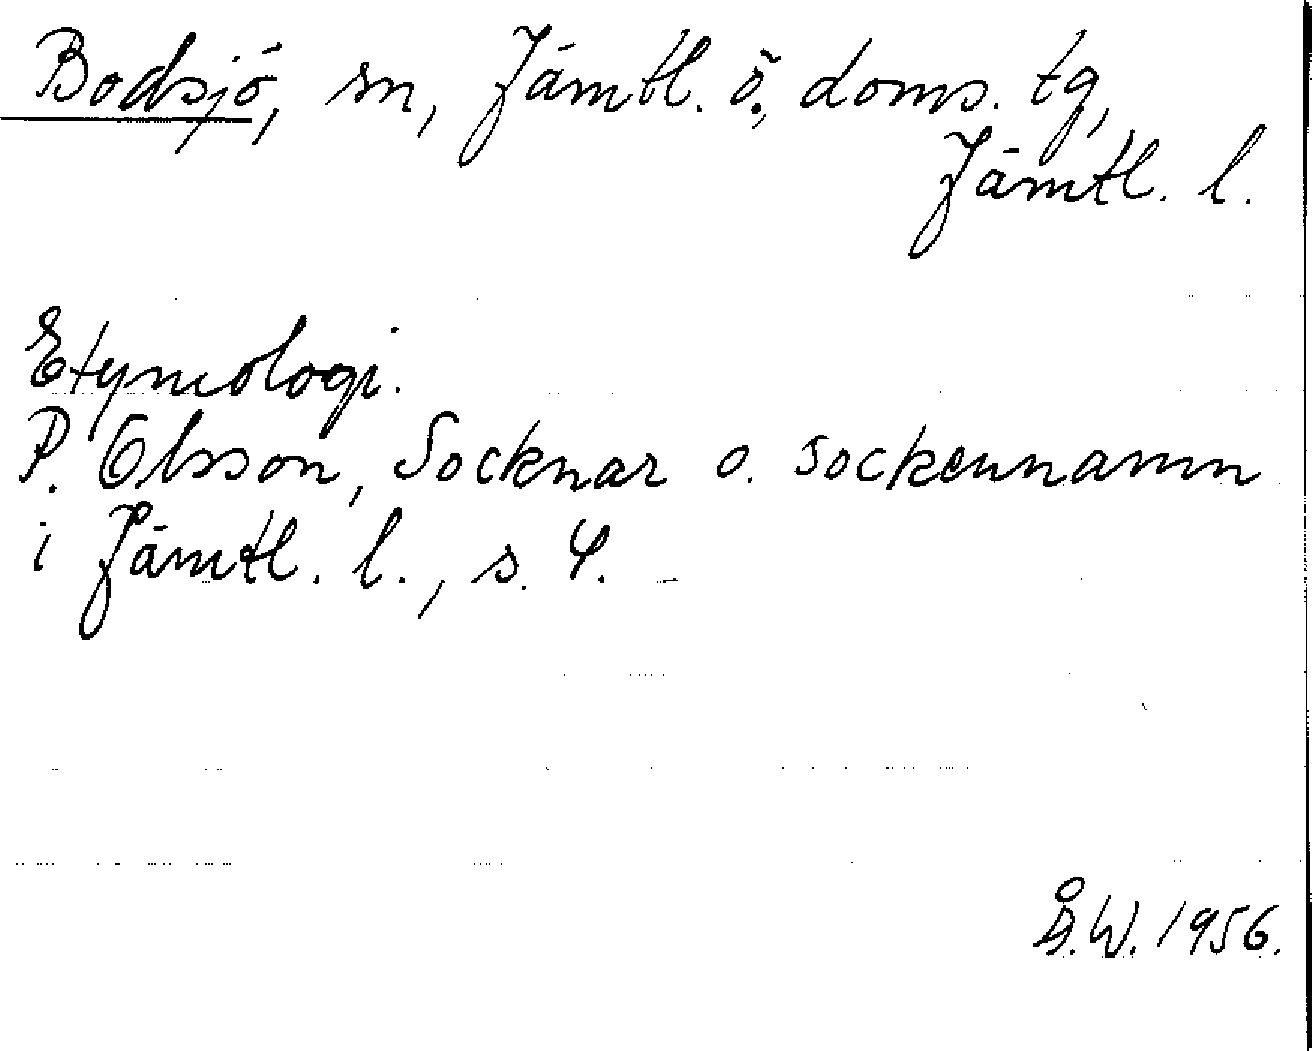 Bodsjö, sn, Jämtl. ö. doms. tg,
Jämtl. l.
Etymologi.
P. Olsson, Socknar o. sockennamn
i Jämtl. l., s. 4.
Å.W. 1956.